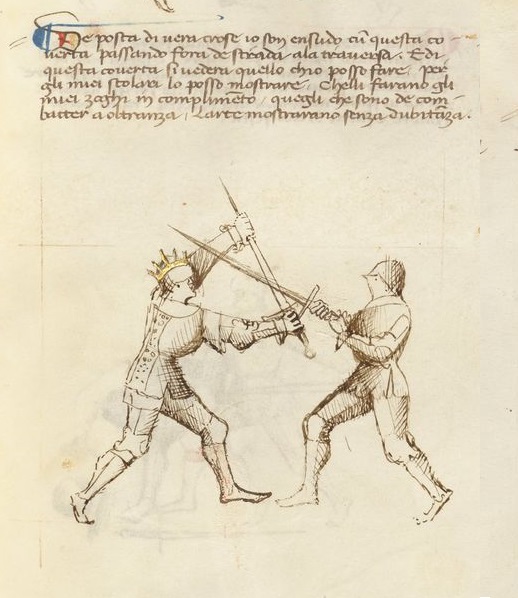 De posta di vera crose io son ensudo cũ questa co-
verta passando fora de strada ala traversa. E di
questa coverta si vederà quello ch'io posso fare, per
gli miei scolari lo posso mostrare. Chelli farano gli
miei zoghi in complimẽto, quegli che sono de com-
batter a oltranza, l'arte mostrarano senza dubitãza.